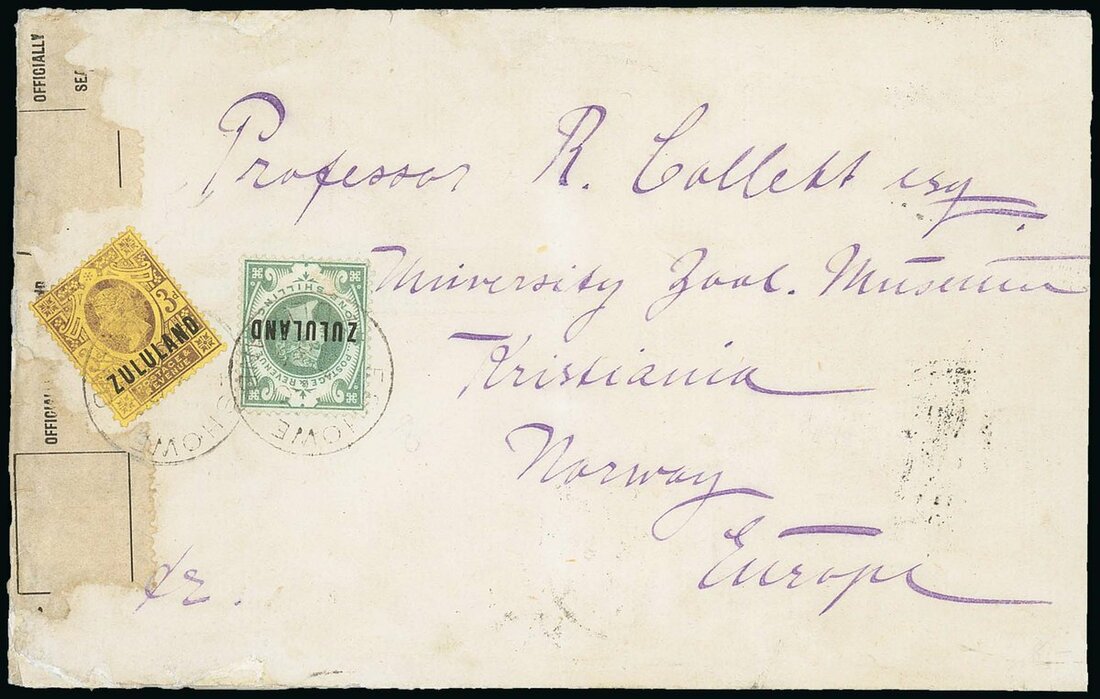 OFFICIALLY
Professor R. Collett esq.
University Zool. Museum
Kristiania
Norway
Europe
3D
ZULULAND
POSTAGE & REVENUE
ONE SHILLING
ZULULAND
POSTAGE & REVENUE
ESHOWE
ESHOWE